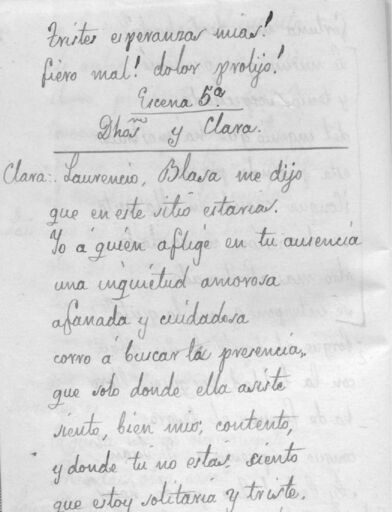 Tristes esperanzas mias!
fiero mal! dolor prolijo!
Escena 5ª
Dhōs y Clara.
Clara: Laurencio, Blasa me dijo
que en este sitio estarias.
Yo á quién aflige en tu ausencia
una inquietud amorosa
afanada y cuidadosa
corro á buscar la presencia,
que solo donde ella asiste
siento, bien mio, contento,
y donde tú no estas, siento
que estoy solitaria y triste.